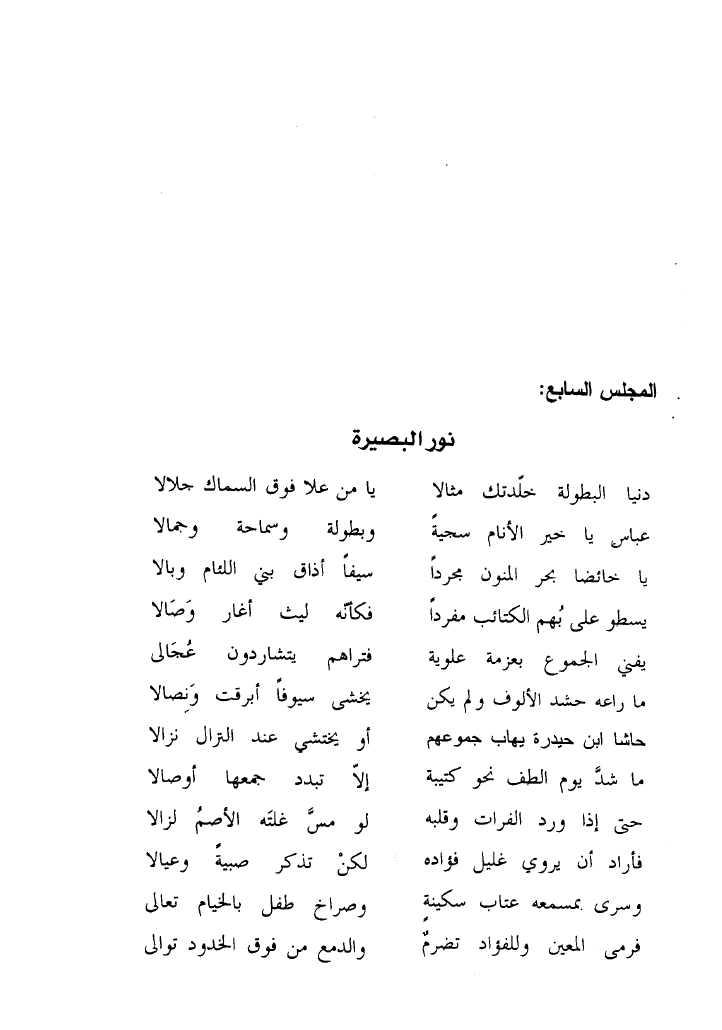 المجلس السابع:
نور البصيرة
دنيا البطولة خلّدتك مثالا يا من علا فوق السماك جلالا
عباس يا خير الأنام سجيةً وبطولة وسماحة وجمالا
يا خائضا بحر المنون مجرداً سيفاً أذاق بني اللئام وبالا
يسطو على بُهم الكتائب مفرداً فكأنّه ليث أغار وَصَالا
يفني الجموع بعزمة علوية فتراهم يتشاردون عُجَالى
ما راعه حشد الألوف و لم يكن يخشى سيوفاً أبرقت وَنِصالا
حاشا ابن حيدرة يهاب جموعهم أو يختشي عند النزال نزالا
ما شدَّ يوم الطف نحو كتيبة إلاّ تبدد جمعها أوصالا
حتى إذا ورد الفرات وقلبه لو مسَّ غلتَه الأصمُ لزالا
فأراد أن يروي غليل فؤاده لكنْ تذكر صبيةً وعيالا
وسرى بمسمعه عتاب سكينةٍ وصراخ طفل بالخيام تعالى
فرمى المعين وللفؤاد تضرمٌ والدمع من فوق الخدود توالى